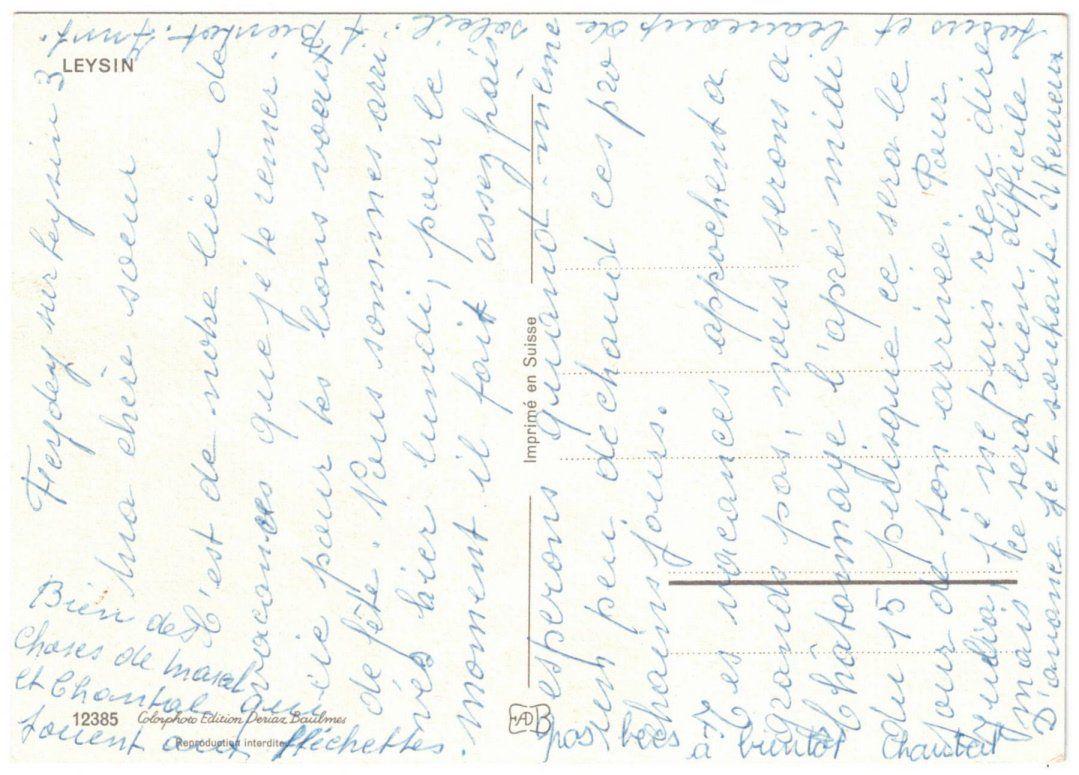 LEYSIN
Feydey sur Leysin 3
Ma chère soeur
C'est de notre lieu de
vacances que je te remer-
cie pour tes bons voeux
de fête. Nous sommes arri
vés hier lundi, pour le
moment il fait assez frais
esperons quand-même
un peu de chaud ces pro
chains jours.
Tes vacances approchent a
grands pas, nous serons a
Châtonnaye l'après midi
du 15 puisque ce sera le
jour de ton arrivée. Pour
Julia, je ne puis rien dire
mais ce sera bien difficile.
D'avance je te souhaite d'heureux
et beaucoup de
soleil. A
Bientôt.
Bien des
Choses de Marcel
et Chantal qui
jouent aux fléchettes.
12385 Colorphoto Edition Deriaz, Baulmes
Reproduction interdite
Imprimé en Suisse
becs à bientôt Chantal